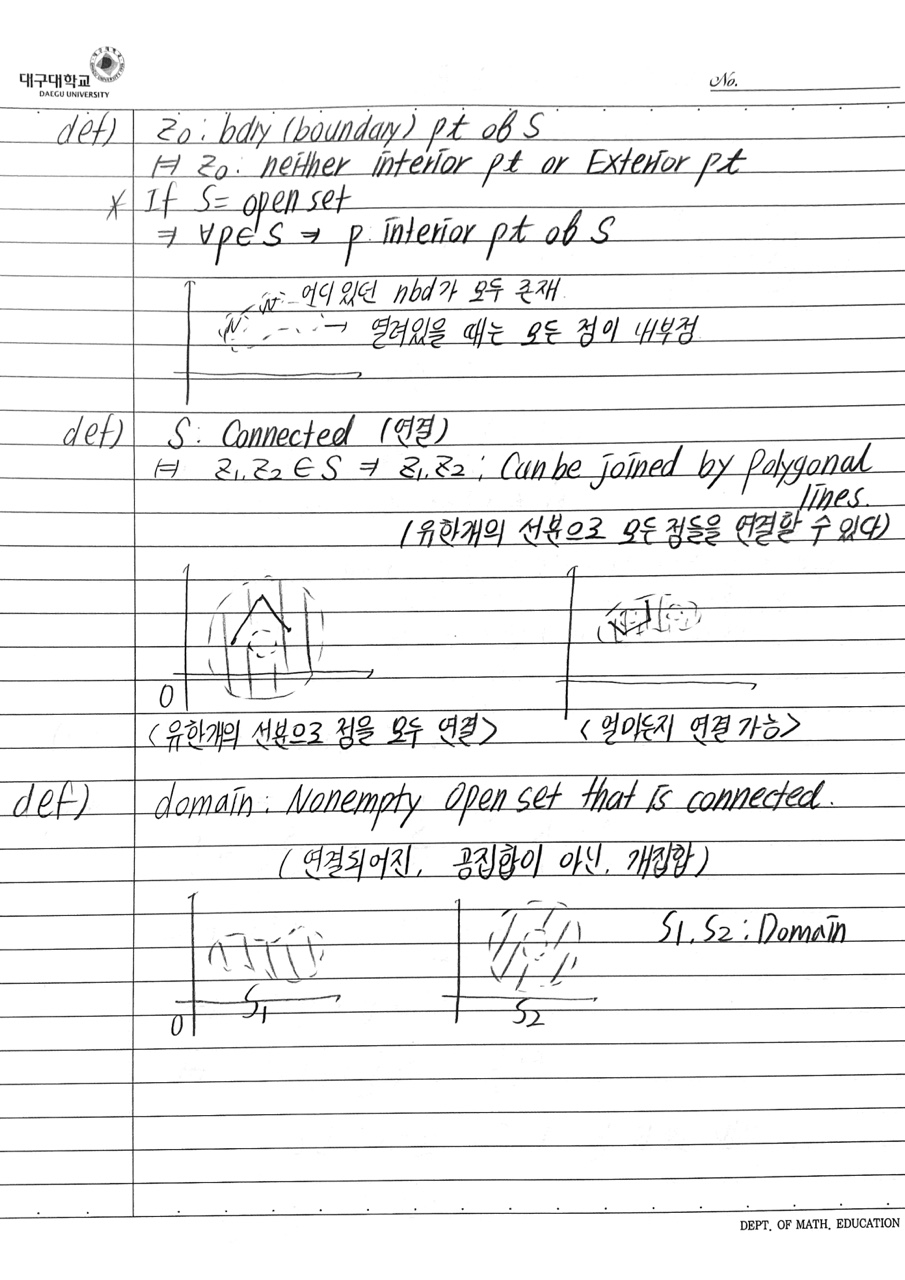 대구대학교
DAEGU UNIVERSITY
No.
def) z₀ : bdry (boundary) pt of S
⊨ z₀ : neither interior pt or Exterior pt
* If S = open set
⇒ ∀p∈S ⇒ p interior pt of S
어디 있던 nbd가 모두 존재
열려있을 때는 모든 점이 내부점
def) S : Connected (연결)
⊨ z₁, z₂ ∈ S ⇒ z₁, z₂ ; Can be joined by polygonal
lines.
(유한개의 선분으로 모든 점들을 연결할 수 있다)
O
<유한개의 선분으로 점을 모두 연결> <얼마든지 연결 가능>
def) domain : Nonempty Open set that is connected.
(연결되어진, 공집합이 아닌, 개집합)
S₁, S₂ : Domain
O S₁ S₂
DEPT. OF MATH. EDUCATION